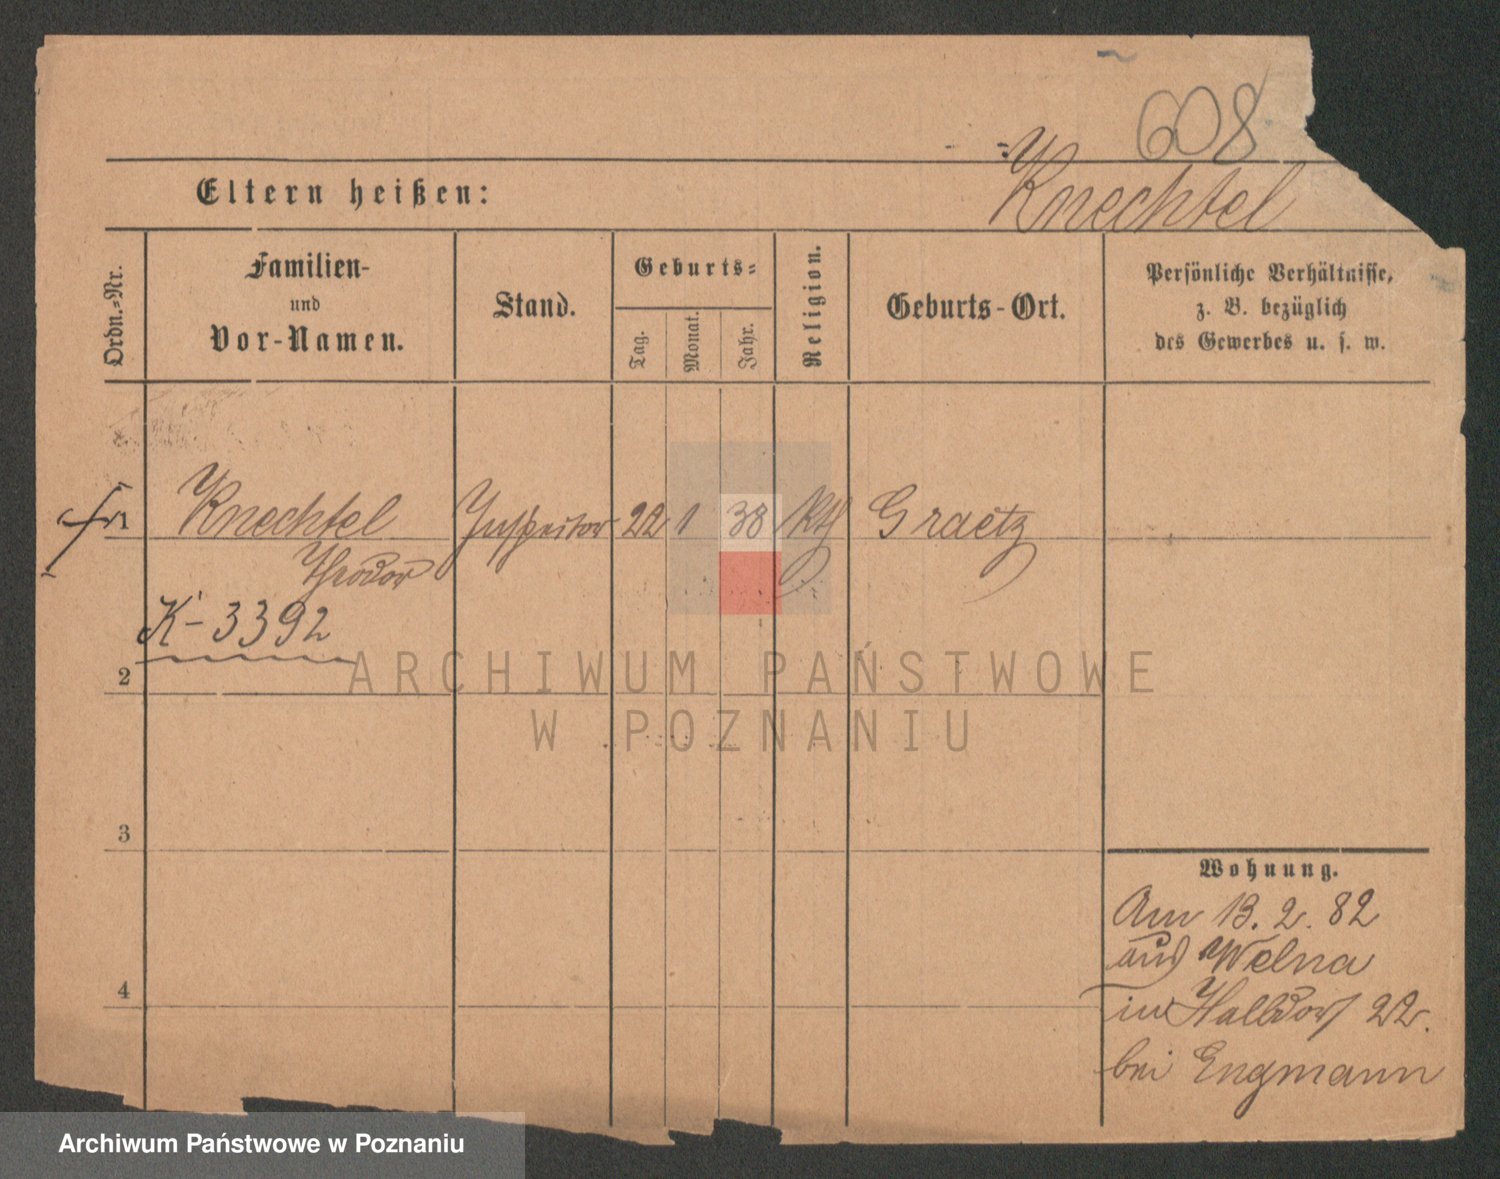 608
Knechtel
Eltern heißen:
Ordn.-Nr.
Familien-
und
Vor-Namen.
Stand.
Geburts-
Tag.
Monat.
Jahr.
Religion.
Geburts-Ort.
Persönliche Verhältnisse,
z. B. bezüglich
des Gewerbes u. s. w.
1 Knechtel Inspector 22 1 38 kth Graetz
Theodor
K-3392
2
3
4
Wohnung.
Am 13. 2. 82
aus Welna
in Halbdorf 22.
bei Engmann
ARCHIWUM PAŃSTWOWE
W POZNANIU
Archiwum Państwowe w Poznaniu